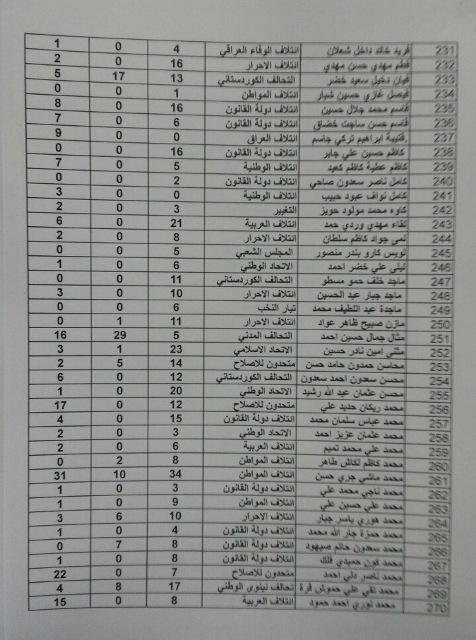 231 فريد خالد داخل شعلان ائتلاف الوفاء العراقي 4 0 1
232 فطم مهدي حسن مهدي ائتلاف الاحرار 16 0 2
233 فيان دخيل سعيد خضر التحالف الكوردستاني 13 17 5
234 فيصل غازي حسين شبار ائتلاف المواطن 1 0 0
235 قاسم محمد جلال حسين ائتلاف دولة القانون 16 0 8
236 قاسم حسن ساجت خضاق ائتلاف دولة القانون 6 0 7
237 قتيبة ابراهيم تركي جاسم ائتلاف العراق 0 0 9
238 كاظم حسين علي جابر ائتلاف دولة القانون 16 0 0
239 كاظم عطية كاظم كعيد ائتلاف الوطنية 5 0 7
240 كامل ناصر سعدون صاحي ائتلاف دولة القانون 2 0 0
241 كامل نواف عبود حبيب ائتلاف الوطنية 0 0 3
242 كاوه محمد مولود حويز التغيير 3 0 2
243 لقاء مهدي وردي حمد ائتلاف العربية 21 0 6
244 لمى جواد كاظم سلطان ائتلاف الاحرار 8 0 2
245 لويس كارو بندر منصور المجلس الشعبي 5 0 0
246 ليلى علي خضر احمد الاتحاد الوطني 6 0 1
247 ماجد خلف حمو مسطو التحالف الكوردستاني 11 0 0
248 ماجد جبار عبد الحسين ائتلاف الاحرار 10 0 3
249 ماجدة عبد اللطيف محمد تيار النخب 6 0 0
250 مازن صبيح ظاهر عواد ائتلاف الاحرار 11 1 0
251 مثال جمال حسين احمد التحالف المدني 5 29 16
252 مثنى امين نادر حسين الاتحاد الاسلامي 23 1 3
253 محاسن حمدون حامد حسن متحدون للاصلاح 14 5 2
254 محسن سعدون احمد سعدون التحالف الكوردستاني 12 0 6
255 محسن عثمان عبد الله رشيد الاتحاد الوطني 20 0 1
256 محمد ريكان حديد علي متحدون للاصلاح 12 0 17
257 محمد عباس سلمان محمد ائتلاف دولة القانون 15 0 4
258 محمد عثمان عزيز احمد الاتحاد الوطني 3 0 2
259 محمد علي محمد تميم ائتلاف العربية 6 0 2
260 محمد كاظم لكاش طاهر ائتلاف المواطن 8 2 0
261 محمد ماشي جري حسن ائتلاف المواطن 34 10 31
262 محمد ناجي محمد علي ائتلاف دولة القانون 3 0 1
263 محمد علي حسين علي ائتلاف المواطن 9 0 1
264 محمد هوري ياسر جبار ائتلاف الاحرار 10 6 3
265 محمد حمزة جار الله محمد ائتلاف دولة القانون 4 0 1
266 محمد سعدون حاتم صيهود ائتلاف دولة القانون 8 7 0
267 محمد كون حميدي فلك ائتلاف دولة القانون 8 0 1
268 محمد ناصر دلي احمد متحدون للاصلاح 7 0 22
269 محمد تقي علي حموش قرة تحالف نينوى الوطني 17 8 4
270 محمد نوري احمد حمود ائتلاف العربية 8 0 15